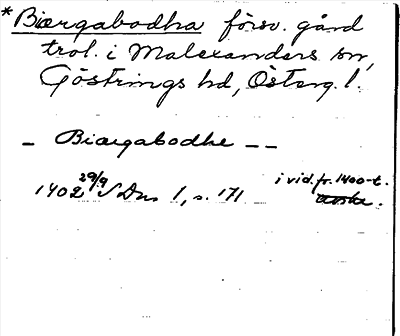 *Biærgabodha försv. gård
trol. i Malexanders sn,
Göstrings hd, Österg. l.
– Biærgabodhe – –
1402 29/9 SDns 1, s. 171
i vid. fr. 1400-t.